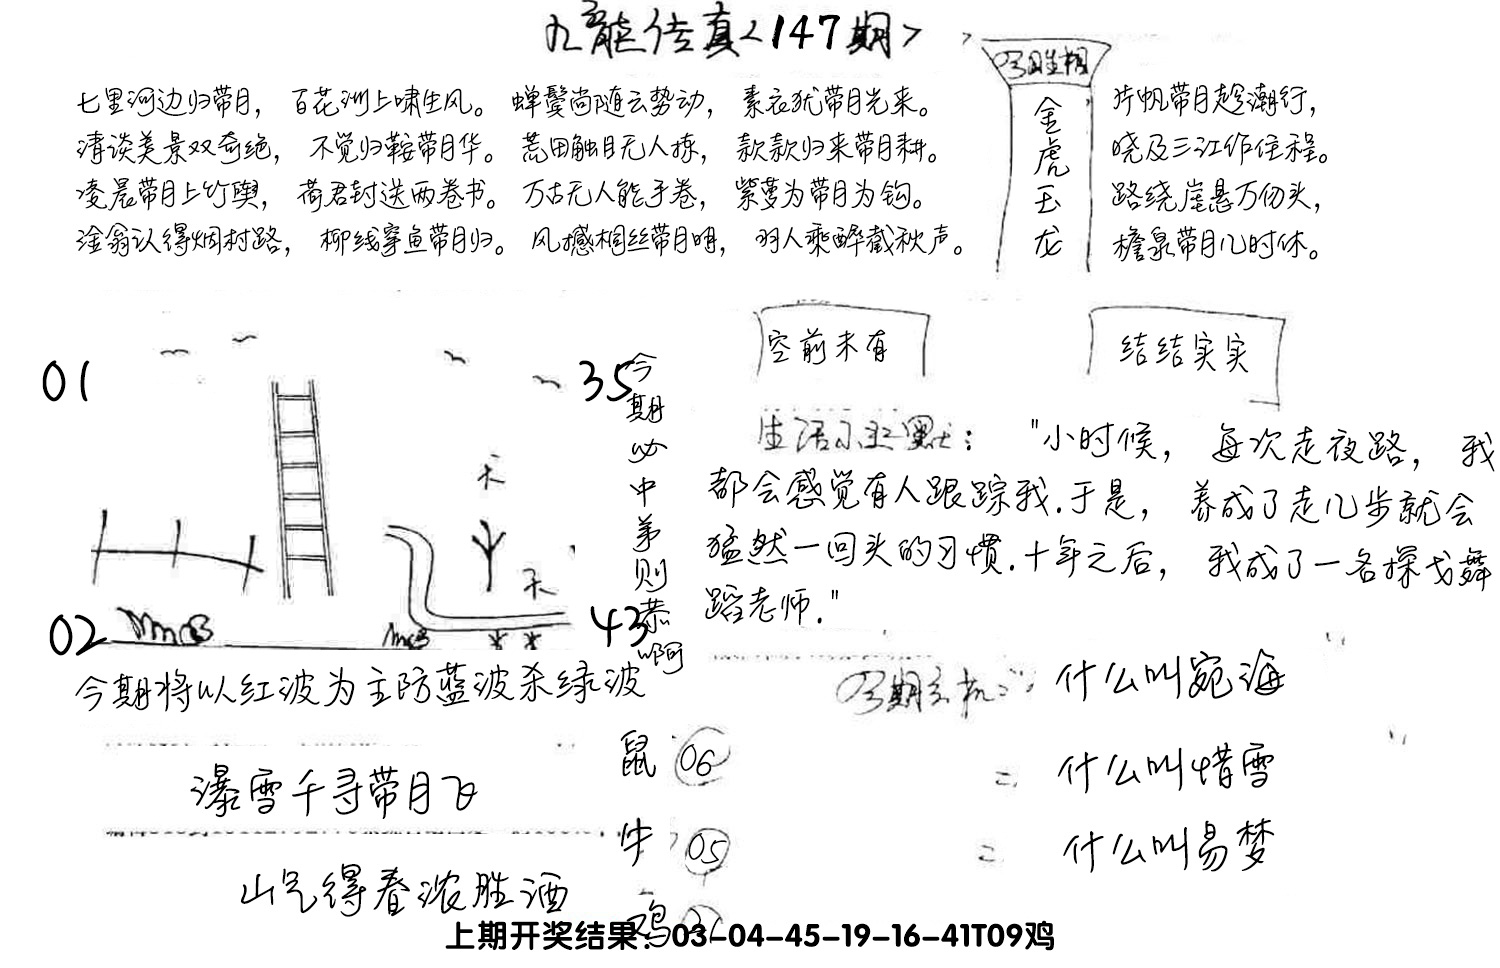 九龍传真<147期>
七里河边归带月，百花洲上啸生风。蝉鬓尚随云势动，素衣犹带月光来。
清谈美景双奇绝，不觉归鞍带月华。荒田触目无人拣，款款归来带月耕。
凌晨带月上竹舆，荷君封送两卷书。万古无人能手卷，紫萝为带月为钩。
淦翁认得烟村路，柳线穿鱼带月归。风撼桐丝带月明，羽人乘醉截秋声。
金虎玉龙
片帆带月趁潮行，
晓及三江作住程。
路绕崖悬万仞头，
檐泉带月几时休。
空前未有
结结实实
01
35
02
43
天
天
今期必中第则恭啊
生活小幽默："小时候，每次走夜路，我
都会感觉有人跟踪我.于是，养成了走几步就会
猛然一回头的习惯.十年之后，我成了一名探戈舞
蹈老师."
今期将以红波为主防蓝波杀绿波
今期玄机：什么叫宛海
什么叫惜雪
什么叫易梦
瀑雪千寻带月飞
山气得春浓胜酒
鼠 06
牛 05
鸡
上期开奖结果：03-04-45-19-16-41T09鸡